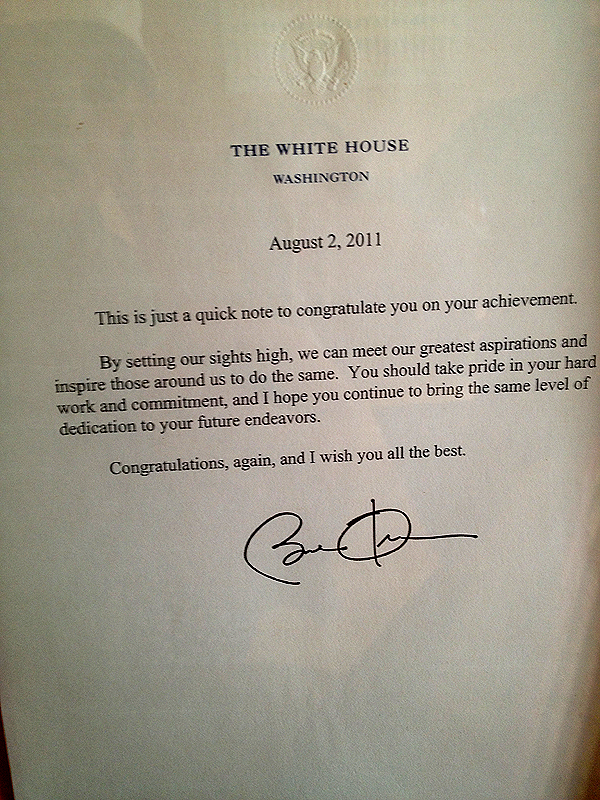 THE WHITE HOUSE
WASHINGTON
August 2, 2011
This is just a quick note to congratulate you on your achievement.
By setting our sights high, we can meet our greatest aspirations and
inspire those around us to do the same. You should take pride in your hard
work and commitment, and I hope you continue to bring the same level of
dedication to your future endeavors.
Congratulations, again, and I wish you all the best.